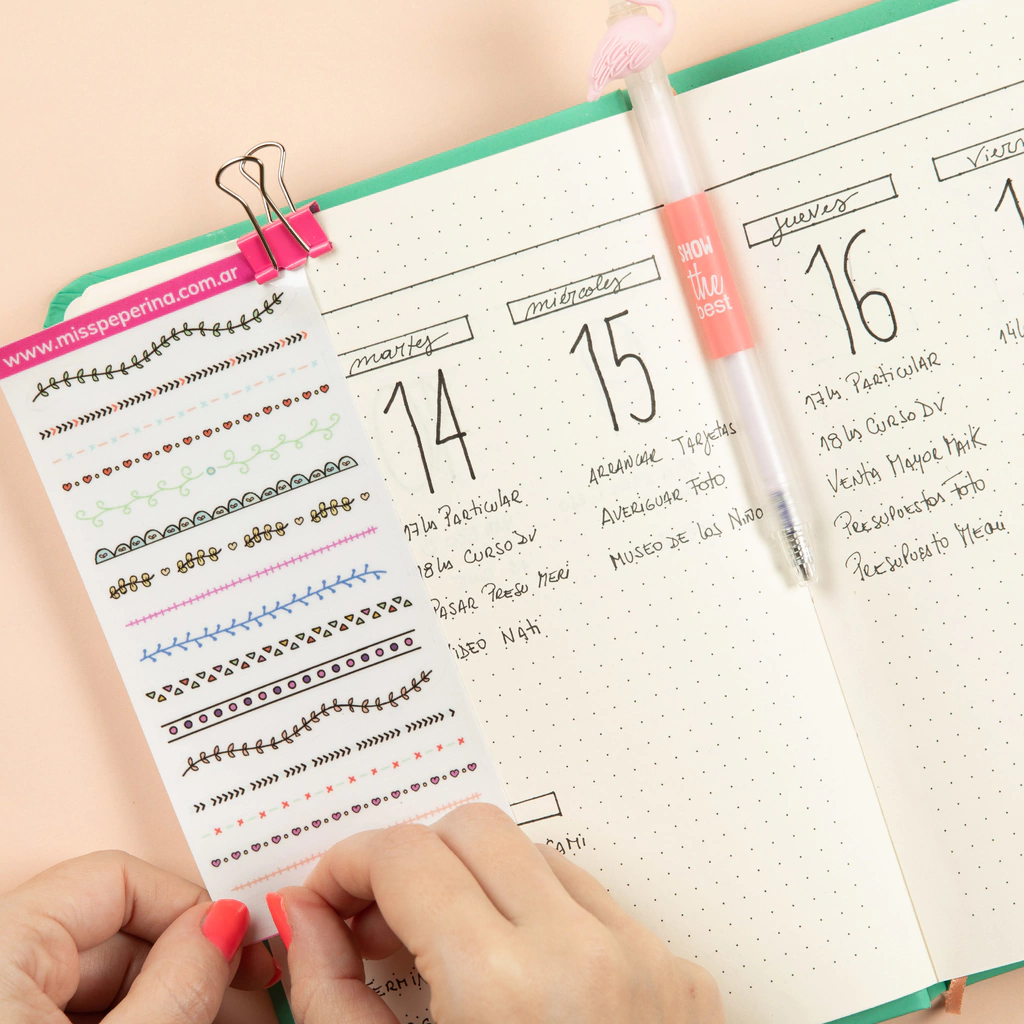 www.misspeperina.com.ar
martes
14
17hs PARTICULAR
18hs CURSO DV
PASAR PRESU MERI
VIDEO NATI
miércoles
15
ARRANCAR TARJETAS
AVERIGUAR FOTO
MUSEO DE LOS NIÑO
SHOW
the
best
jueves
16
17hs PARTICULAR
18hs CURSO DV
VENTA MAYOR MAIK
PRESUPUESTOS FOTO
PRESUPUESTO MERI
viern
1
14h